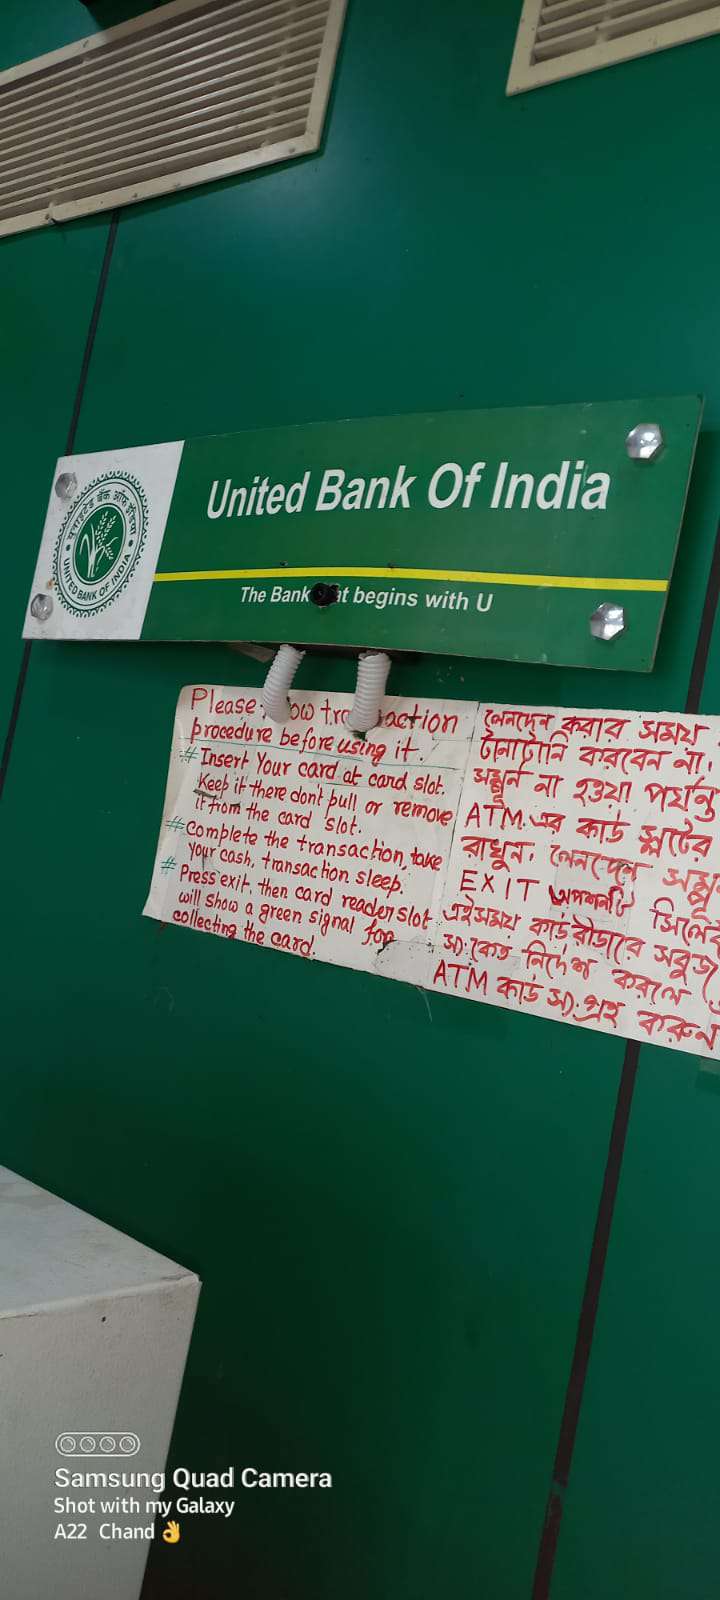 यूनाइटेड बैंक ऑफ इंडिया
UNITED BANK OF INDIA
United Bank Of India
The Bank at begins with U
Please ow tra action
procedure before using it.
# Insert Your card at card slot.
Keep it there don't pull or remove
it from the card slot.
# Complete the transaction, take
your cash, transaction sleep.
# Press exit, then card reader slot
will show a green signal for
collecting the card.
লেনদেন করার সময়
টানাটানি করবেন না।
সম্পূর্ন না হওয়া পর্যন্ত
ATM এর কার্ড স্লটের
রাখুন। লেনদেন সম্পূ
EXIT অপশনটি সিলে
এইসময় কার্ড রীডারে সবুজ
সংকেত নির্দেশ করলে
ATM কার্ড সংগ্রহ করুন
Samsung Quad Camera
Shot with my Galaxy
A22 Chand 👌